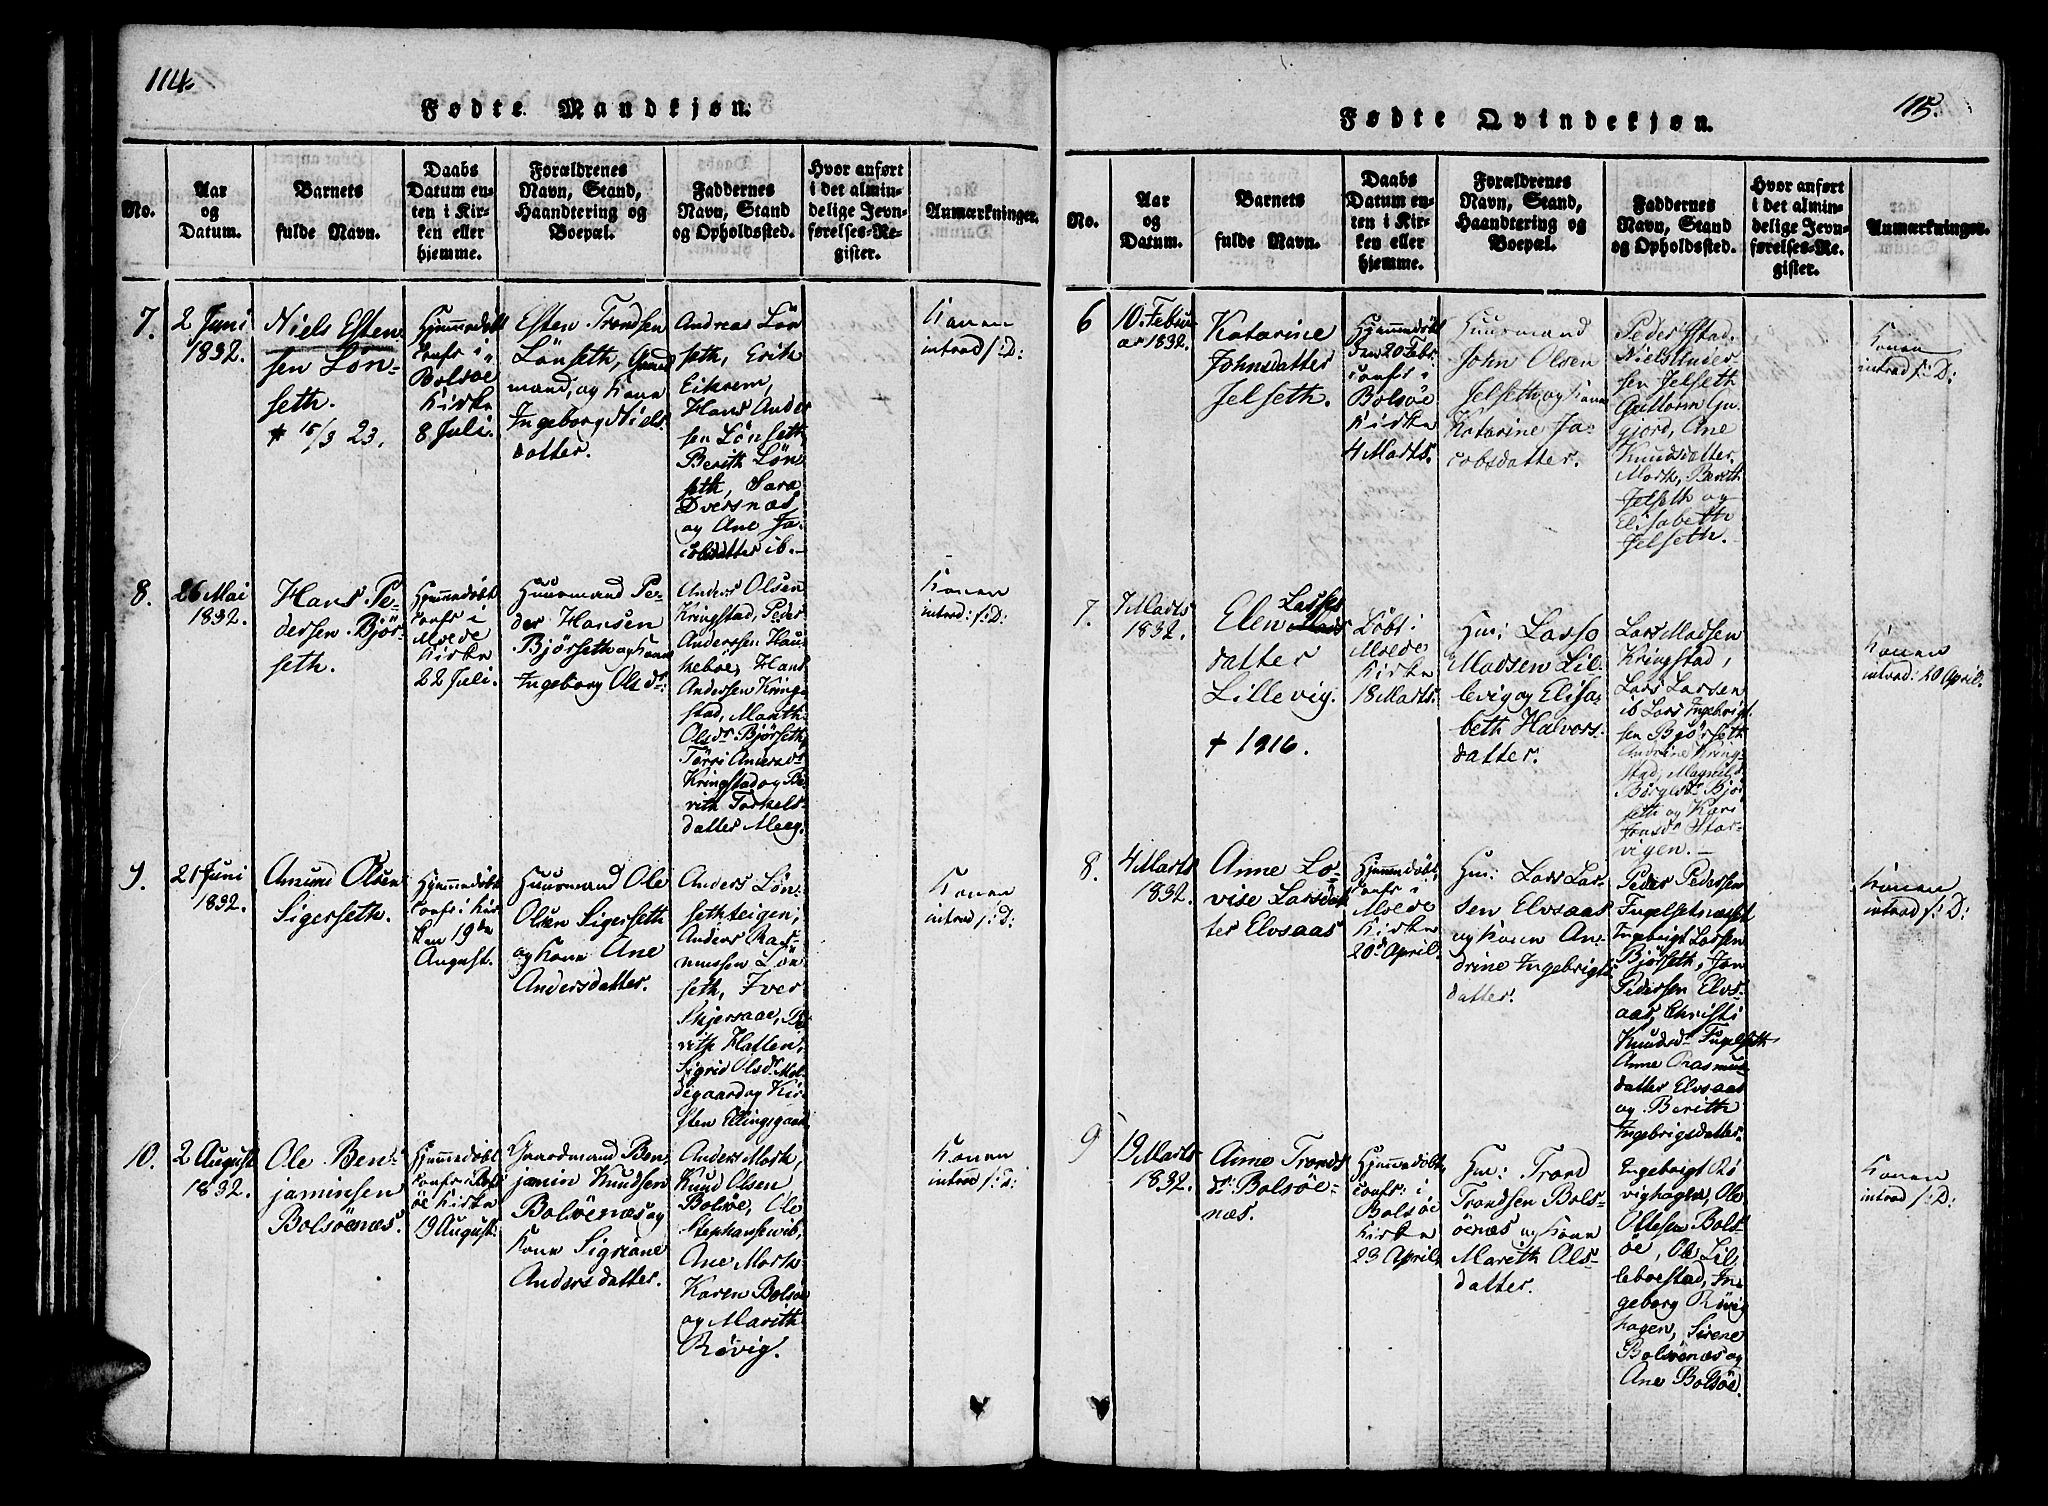 114.
Fødte Mandkjøn.
No.
Aar
og
Datum.
Barnets
fulde Navn.
Daabs
Datum en-
ten i Kir-
ken eller
hjemme.
Forældrenes
Navn, Stand,
Haandtering og
Boepæl.
Faddernes
Navn, Stand
og Opholdssted.
Hvor anført
i det almin-
delige Jevn-
førelses-Re-
gister.
Anmærkninger.
7.
2 Juni
1832.
Niels Esten
sen Løn-
seth.
+ 15/3 23.
Hjemmedøbt
confr i
Bolsøe
Kirke
8 Juli.
Esten Trondsen
Lønseth, Gaard
mand, og Kone
Ingeborg Niels
datter.
Andreas Løn
seth, Erik
Eikrem,
Hans Ander
sen Lønseth,
Berith Løn
seth, Sara
Dversnæs
og Ane Ja-
cobsdatter ib.
Konen
introd f: D:
8.
26 Mai
1832.
Hans Pe-
dersen Bjør-
seth.
Hjemmedøbt
confr i
Molde
Kirke
22 Juli.
Huusmand Pe-
der Hansen
Bjørseth og Kone
Ingeborg Olsdr:
Anders Olsen
Kringstad, Peder
Anderssen Hau-
kebøe, Hans
Andersen Kring-
stad, Marith
Olsdr Bjørseth,
Andersdr
Kringstad og Be-
rith Torkels-
datter Meeg.
Konen
introd: f: D:
9.
21 Juni
1832.
Amund Olsen
Sigerseth.
Hjemmedøbt
confr i Kir
ken 19de
August.
Huusmand Ole
Olsen Sigerseth
og Kone Ane
Andersdatter.
Anders Løn-
sethteigen,
Anders Ras-
mussen Løn
seth, Iver
Skjersaae, Be
rithe Hatlen,
Sigrid Olsdr Mol-
degaard og Kir-
sten Ellingsgaard
Konen
introd f: D:
10.
2 August
1832.
Ole Ben-
jaminsen
Bolsøenæs.
Hjemmedøbt
confr i Bols
øe Kirke
19 August.
Gaardmand Ben-
jamin Knudsen
Bolsøenæs og
Kone Sigriane
Andersdatter.
Anders Mork,
Knud Olsen
Bolsøe, Ole
Stephansen ib,
Ane Mork
Karen Bolsøe
og Marith
Røvig.
Konen
introd f: D:
115.
Fødte Qvindekjøn.
No.
Aar
og
Datum.
Barnets
fulde Navn.
Daabs
Datum en-
ten i Kir-
ken eller
hjemme.
Forældrenes
Navn, Stand,
Haandtering og
Boepæl.
Faddernes
Navn, Stand
og Opholdssted.
Hvor anført
i det almin-
delige Jevn-
førelses-Re-
gister.
Anmærkninger.
6
10. Febru
ar 1832.
Katarine
Johnsdatter
Jelseth.
Hjemmedøbt
den 20 Febr.
confr i
Bolsøe
Kirke
4 Marts.
Huusmand
John Olsen
Jelseth og Kone
Katarine Ja-
cobsdatter.
Peder Stad,
Niels
sen Jelseth
Guttorm Gu
gjord, Ane
Knudsdatter
Mork, Berith
Jelseth og
Elisabeth
Jelseth.
Konen
introd f: D:
7.
7 Marts
1832.
Elen Lasses
datter
Lillevig.
+ 1916.
Døbt i
Molde
Kirke
18 Marts.
Hm: Lasse
Madsen Lil-
levig og Elisa-
beth Halvors-
datter.
Lars Madsen
Kringstad,
Lars Larsen
ib Lars Ingebrigt-
sen Bjørseth
Andrine Kring-
stad, Magnild
Børgesdr Bjør
seth og Kari
Jonsdr Stor-
vigen.
Konen
introd: 20 April.
8.
4 Marts
1832.
Anne Lo-
vise Larsdat
ter Elvsaas
Hjemmedøbt
confr i
Molde
Kirke
20de April.
Hm: Lars Lar-
sen Elvsaas
og Konen An-
drine Ingebrigts
datter.
Peder Pedersen
Fugelsetnæsset
Ingebrigt Larsen
Bjørseth, Jon
Pedersen Elvs-
aas, Christi
Knudsdr Fugelseth
Anne Rasmus-
datter Elvsaas
og Berith
Ingebrigsdatter.
Konen
introd f: D:
9
19 Marts
1832.
Anne Tronds
dr. Bolsøe-
næs.
Hjemmedøbt
confr: i
Bolsøe
Kirke
23 April.
Hm: Trond
Trondsen Bols-
øenæs og Kone
Marith Ols-
datter.
Ingebrigt Rø
vighagen, Ole
Ottesen Bols-
øe, Ole Lil-
leboestad, In-
geborg Røvig
hagen, Sirene
Bolsøenæs og
Ane Bolsøe.
Konen
introd f: D: